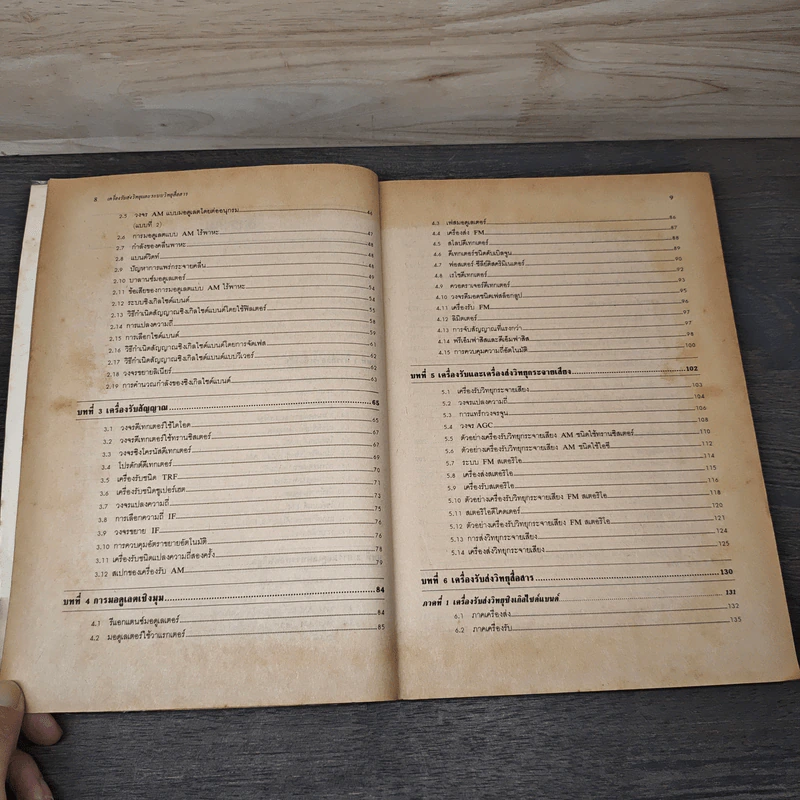 8 เครื่องรับส่งวิทยุและระบบวิทยุสื่อสาร
2.5 วงจร AM แบบมอดูเลตโดยต่ออนุกรม 46
(แบบที่ 2)
2.6 การมอดูเลตแบบ AM ไร้พาหะ 47
2.7 กำลังของคลื่นพาหะ 48
2.8 แบนด์วิดท์ 48
2.9 ปัญหาการแพร่กระจายคลื่น 48
2.10 บาลานซ์มอดูเลเตอร์ 49
2.11 ข้อเสียของการมอดูเลตแบบ AM ไร้พาหะ 50
2.12 ระบบซิงเกิลไซด์แบนด์ 54
2.13 วิธีกำเนิดสัญญาณซิงเกิลไซด์แบนด์โดยใช้ฟิลเตอร์ 54
2.14 การแปลงความถี่ 55
2.15 การเลือกไซด์แบนด์ 60
2.16 วิธีกำเนิดสัญญาณซิงเกิลไซด์แบนด์โดยการจัดเฟส 61
2.17 วิธีกำเนิดสัญญาณซิงเกิลไซด์แบนด์แบบวีเวอร์ 62
2.18 วงจรขยายลิเนียร์ 62
2.19 การคำนวณกำลังของซิงเกิลไซด์แบนด์ 63
บทที่ 3 เครื่องรับสัญญาณ 65
3.1 วงจรดีเทกเตอร์ใช้ไดโอด 65
3.2 วงจรดีเทกเตอร์ใช้ทรานซิสเตอร์ 67
3.3 วงจรซิงโครนัสดีเทกเตอร์ 68
3.4 โปรดักต์ดีเทกเตอร์ 69
3.5 เครื่องรับชนิด TRF 70
3.6 เครื่องรับชนิดซูเปอร์เฮต 71
3.7 วงจรแปลงความถี่ 73
3.8 การเลือกความถี่ IF 75
3.9 วงจรขยาย IF 76
3.10 การควบคุมอัตราขยายอัตโนมัติ 76
3.11 เครื่องรับชนิดแปลงความถี่สองครั้ง 78
3.12 สเปกของเครื่องรับ AM 79
บทที่ 4 การมอดูเลตเชิงมุม 84
4.1 รีแอกแตนซ์มอดูเลเตอร์ 84
4.2 มอดูเลเตอร์ใช้วาแรกเตอร์ 85
9
4.3 เฟสมอดูเลเตอร์ 86
4.4 เครื่องส่ง FM 87
4.5 สโลปดีเทกเตอร์ 88
4.6 ดีเทกเตอร์ชนิดดับเบิลจูน 89
4.7 ฟอสเตอร์ ซีลีย์ดิสคริมิเนเตอร์ 90
4.8 เรโชดีเทกเตอร์ 92
4.9 ควอดราเจอร์ดีเทกเตอร์ 93
4.10 วงจรดีมอดชนิดเฟสล็อกลูป 95
4.11 เครื่องรับ FM 96
4.12 ลิมิตเตอร์ 97
4.13 การจับสัญญาณที่แรงกว่า 97
4.14 พรีเอ็มฟาสิสและดีเอ็มฟาสิส 98
4.15 การควบคุมความถี่อัตโนมัติ 100
บทที่ 5 เครื่องรับและเครื่องส่งวิทยุกระจายเสียง 102
5.1 เครื่องรับวิทยุกระจายเสียง 103
5.2 วงจรแปลงความถี่ 104
5.3 การแทร็กวงจรจูน 106
5.4 วงจร AGC 108
5.5 ตัวอย่างเครื่องรับวิทยุกระจายเสียง AM ชนิดใช้ทรานซิสเตอร์ 110
5.6 ตัวอย่างเครื่องรับวิทยุกระจายเสียง AM ชนิดใช้ไอซี 112
5.7 ระบบ FM สเตอริโอ 114
5.8 เครื่องส่งสเตอริโอ 115
5.9 เครื่องรับสเตอริโอ 116
5.10 ตัวอย่างเครื่องรับวิทยุกระจายเสียง FM สเตอริโอ 118
5.11 สเตอริโอดีโคดเตอร์ 120
5.12 ตัวอย่างเครื่องรับวิทยุกระจายเสียง FM สเตอริโอ 121
5.13 การส่งวิทยุกระจายเสียง 124
5.14 เครื่องส่งวิทยุกระจายเสียง 125
บทที่ 6 เครื่องรับส่งวิทยุสื่อสาร 130
ภาคที่ 1 เครื่องรับส่งวิทยุซิงเกิลไซด์แบนด์ 131
6.1 ภาคเครื่องส่ง 132
6.2 ภาคเครื่องรับ 135